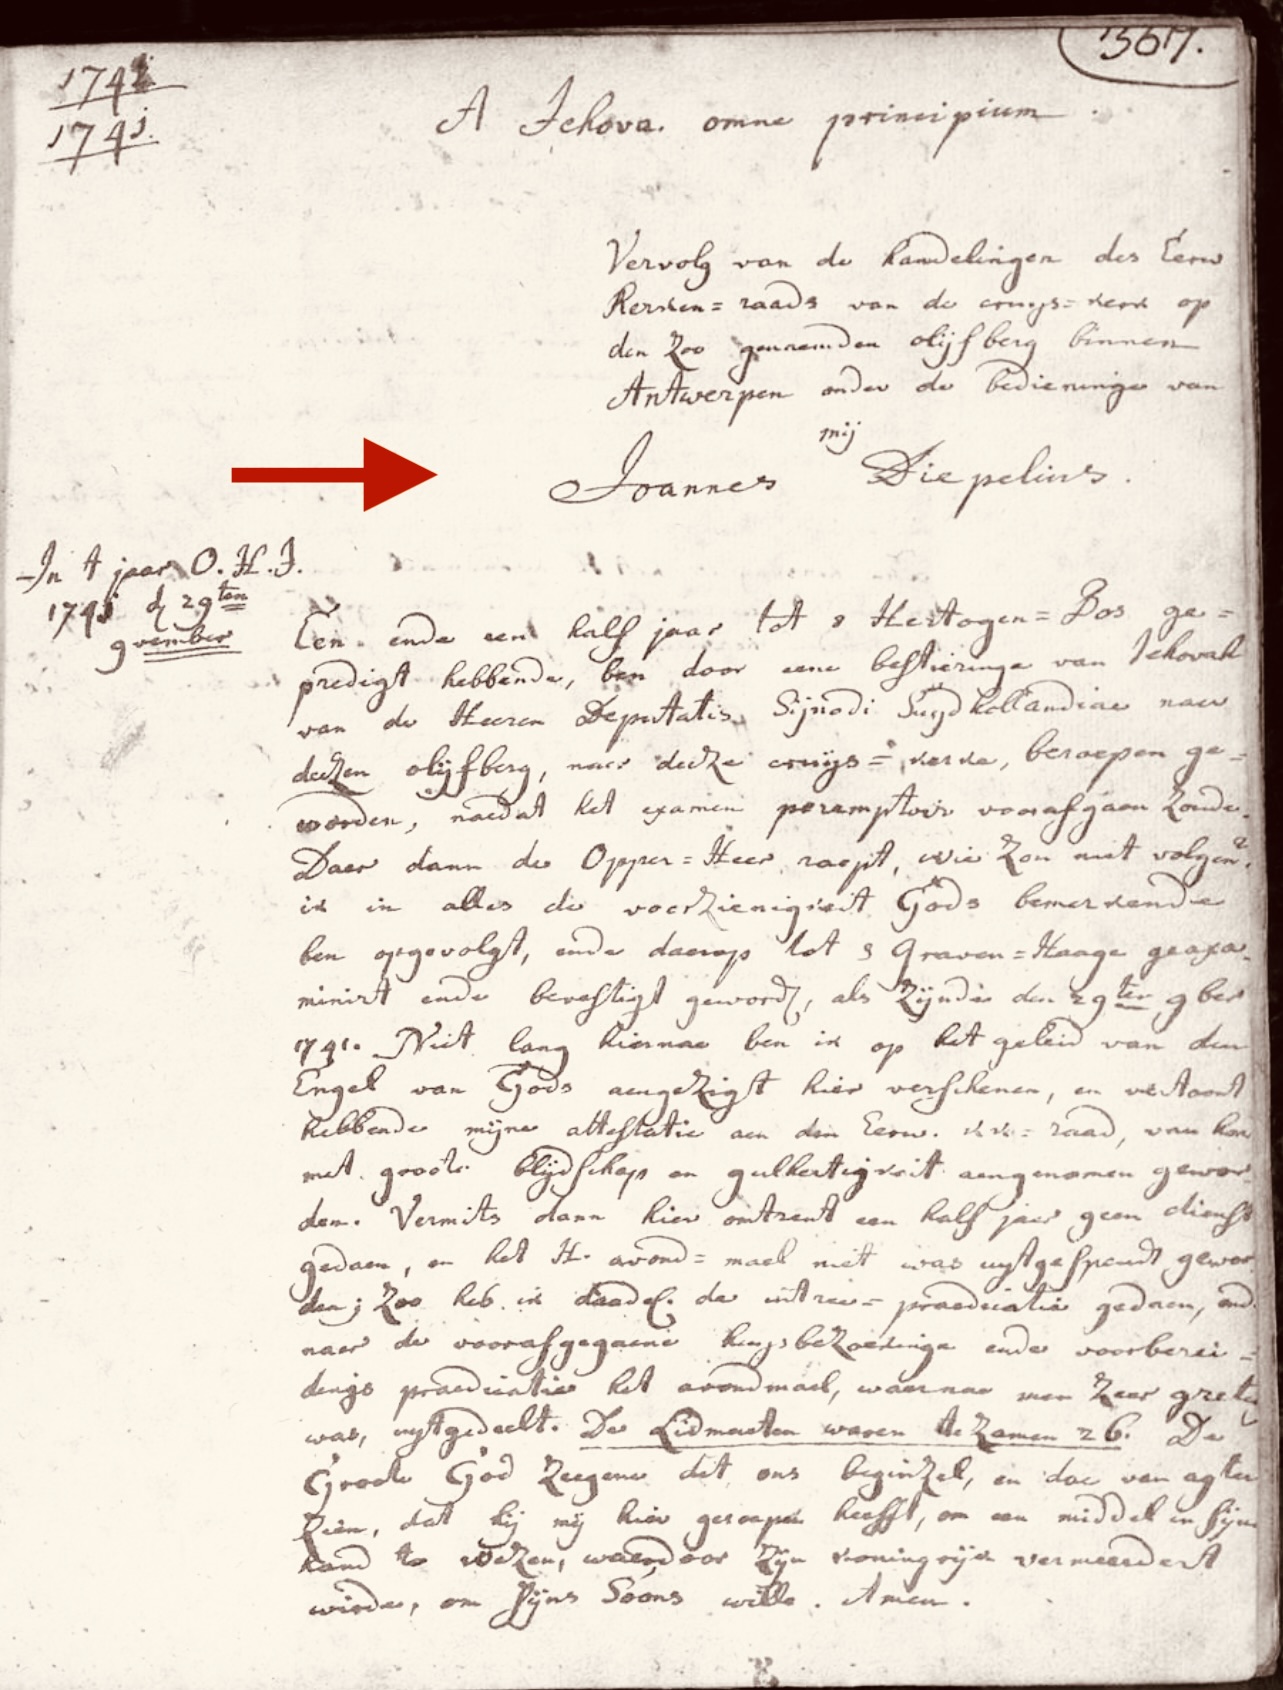 1741
1741.
367.
A Jehova. omne principium.
Vervolg van de handelingen des Eerw
Kerken=raads van de cruys=kerk op
den Zoo genaemden olijfberg binnen
Antwerpen onder de bedieninge van
mij
Joannes Diepelius.
In 't jaar O. H. J.
1741 d 29ten
9vember
Een ende een half jaar tot s Hertogen=Bos ge=
predigt hebbende, ben door eene bestieringe van Jehovah
van de Heeren Deputatis Sijnodi Suijdhollandiae naer
deezen olijfberg, naer deeze cruijs=kerke, beroepen ge=
worden, naedat het examen peremptoir voorafgaen zoude.
Daer dann de Opper=Heer roept, wie zou niet volgen?
ik in alles de voorzienigkeit Gods bemerkende
ben opgevolgt, ende daerop tot s Graven=Haage geexa=
minirt ende bevestigt geword, als zijnde den 29ten 9ber
1741. Niet lang hiernae ben ik op het geleid van den
Engel van Gods aengezigt hier verschenen, en vertoont
hebbende mijne attestatie aen den Eerw. kk=raad, van hen
met groote blijdschap en gulhertigkeit aengenomen gewor=
den. Vermits dann hier omtrent een half jaer geen dienst
gedaen, en het H. avond=mael niet was uytgespendt gewor
den; Zoo heb ik de intree=praedicatie gedaen, end
naer de voorafgegaene huysbezoekinge ende voorberei=
dings praedicatie het avondmael, waernae men zeer
was, uytgedeelt. De Lidmaeten waren te Zamen 26. De
Groote God Zeegene dit ons beginzel, en doe van agter
Zien, dat hij mij hier geroepen heefft, om een middel in sijn
hand te wezen, waerdoor zijn koningrijk vermeerdert
wirde, om Sijns Soons wille. Amen.